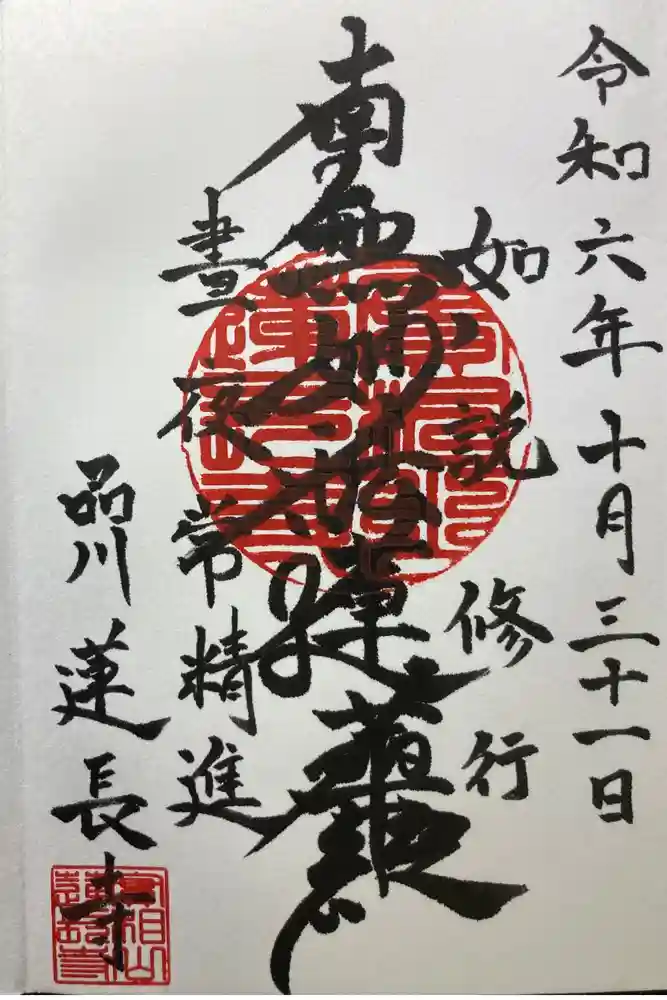 令和六年十月三十一日
如説修行
南無妙法蓮華經
晝夜常精進
品川蓮長寺